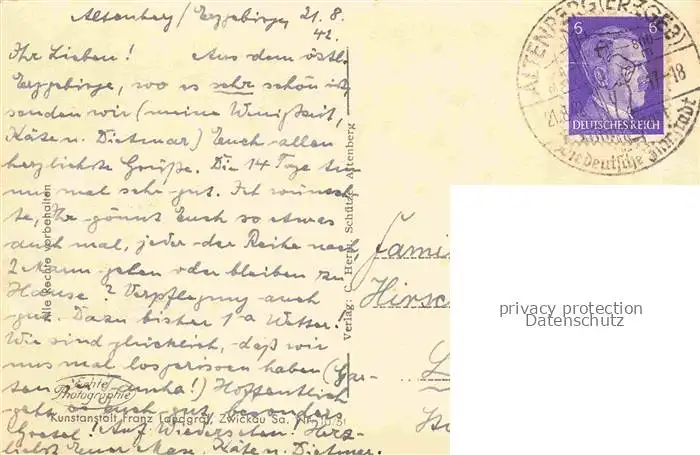 Altenberg/Erzgebirge, 21.8.
42.
Ihr Lieben! Aus dem östl.
Erzgebirge, wo es sehr schön ist,
senden wir (meine Wenigkeit,
Käte u. Dietmar) Euch allen
herzlichste Grüße. Die 14 Tage tun
uns mal sehr gut. Ich wünsch-
te, Ihr gönnt Euch so etwas
auch mal, jeder der Reihe nach,
2 Mann gehen oder bleiben zu
Hause? Verpflegung auch
gut. Dazu bisher 1a Wetter!
Wir sind glücklich, daß wir
uns mal losgerissen haben (Gar-
ten !) Hoffentlich
geht es Euch gut, besonders
Gretel! Auf Wiedersehen! Herz-
lichst Euer Käte u. Dietmar.
Alle Rechte vorbehalten
Echte
Photographie
Kunstanstalt Franz Landgraf, Zwickau Sa. Nr.
Verlag: C. Herm. Schütze, Altenberg
ALTENBERG (ERZGEB)
21.8.42 17-18
800
6 6
DEUTSCHES REICH
Famil
Hirsc
privacy protection
Datenschutz